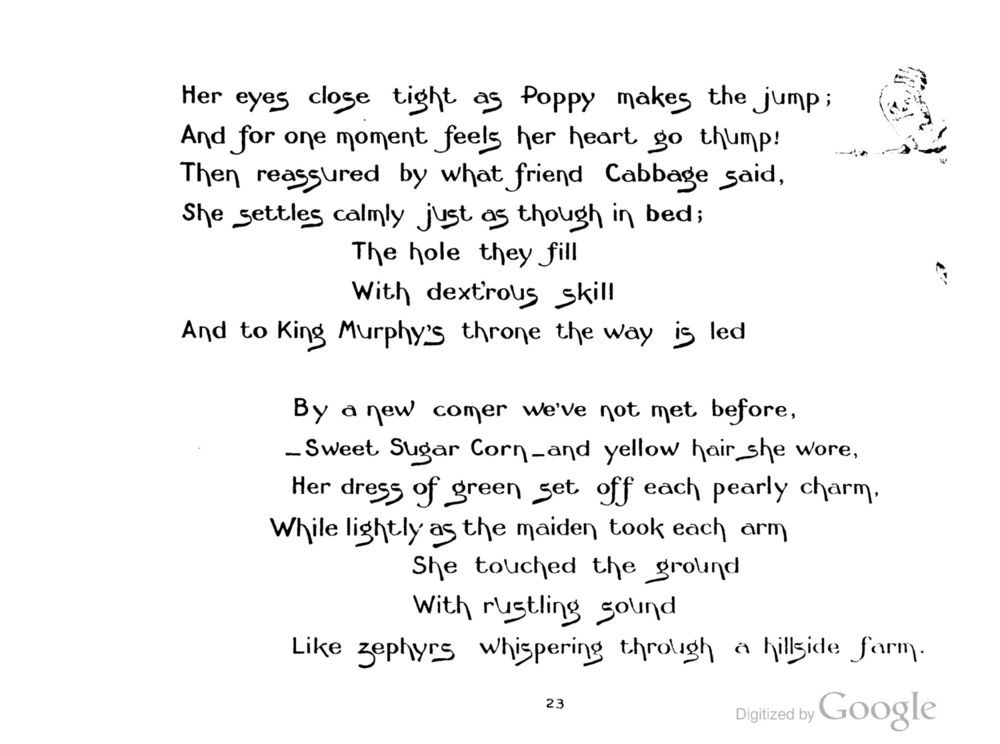 Her eyes close tight as Poppy makes the jump;
And for one moment feels her heart go thump!
Then reassured by what friend Cabbage said,
She settles calmly just as though in bed;
The hole they fill
With dext'rous skill
And to King Murphy's throne the way is led
By a new comer we've not met before,
—Sweet Sugar Corn—and yellow hair she wore,
Her dress of green set off each pearly charm,
While lightly as the maiden took each arm
She touched the ground
With rustling sound
Like zephyrs whispering through a hillside farm.
23
Digitized by Google